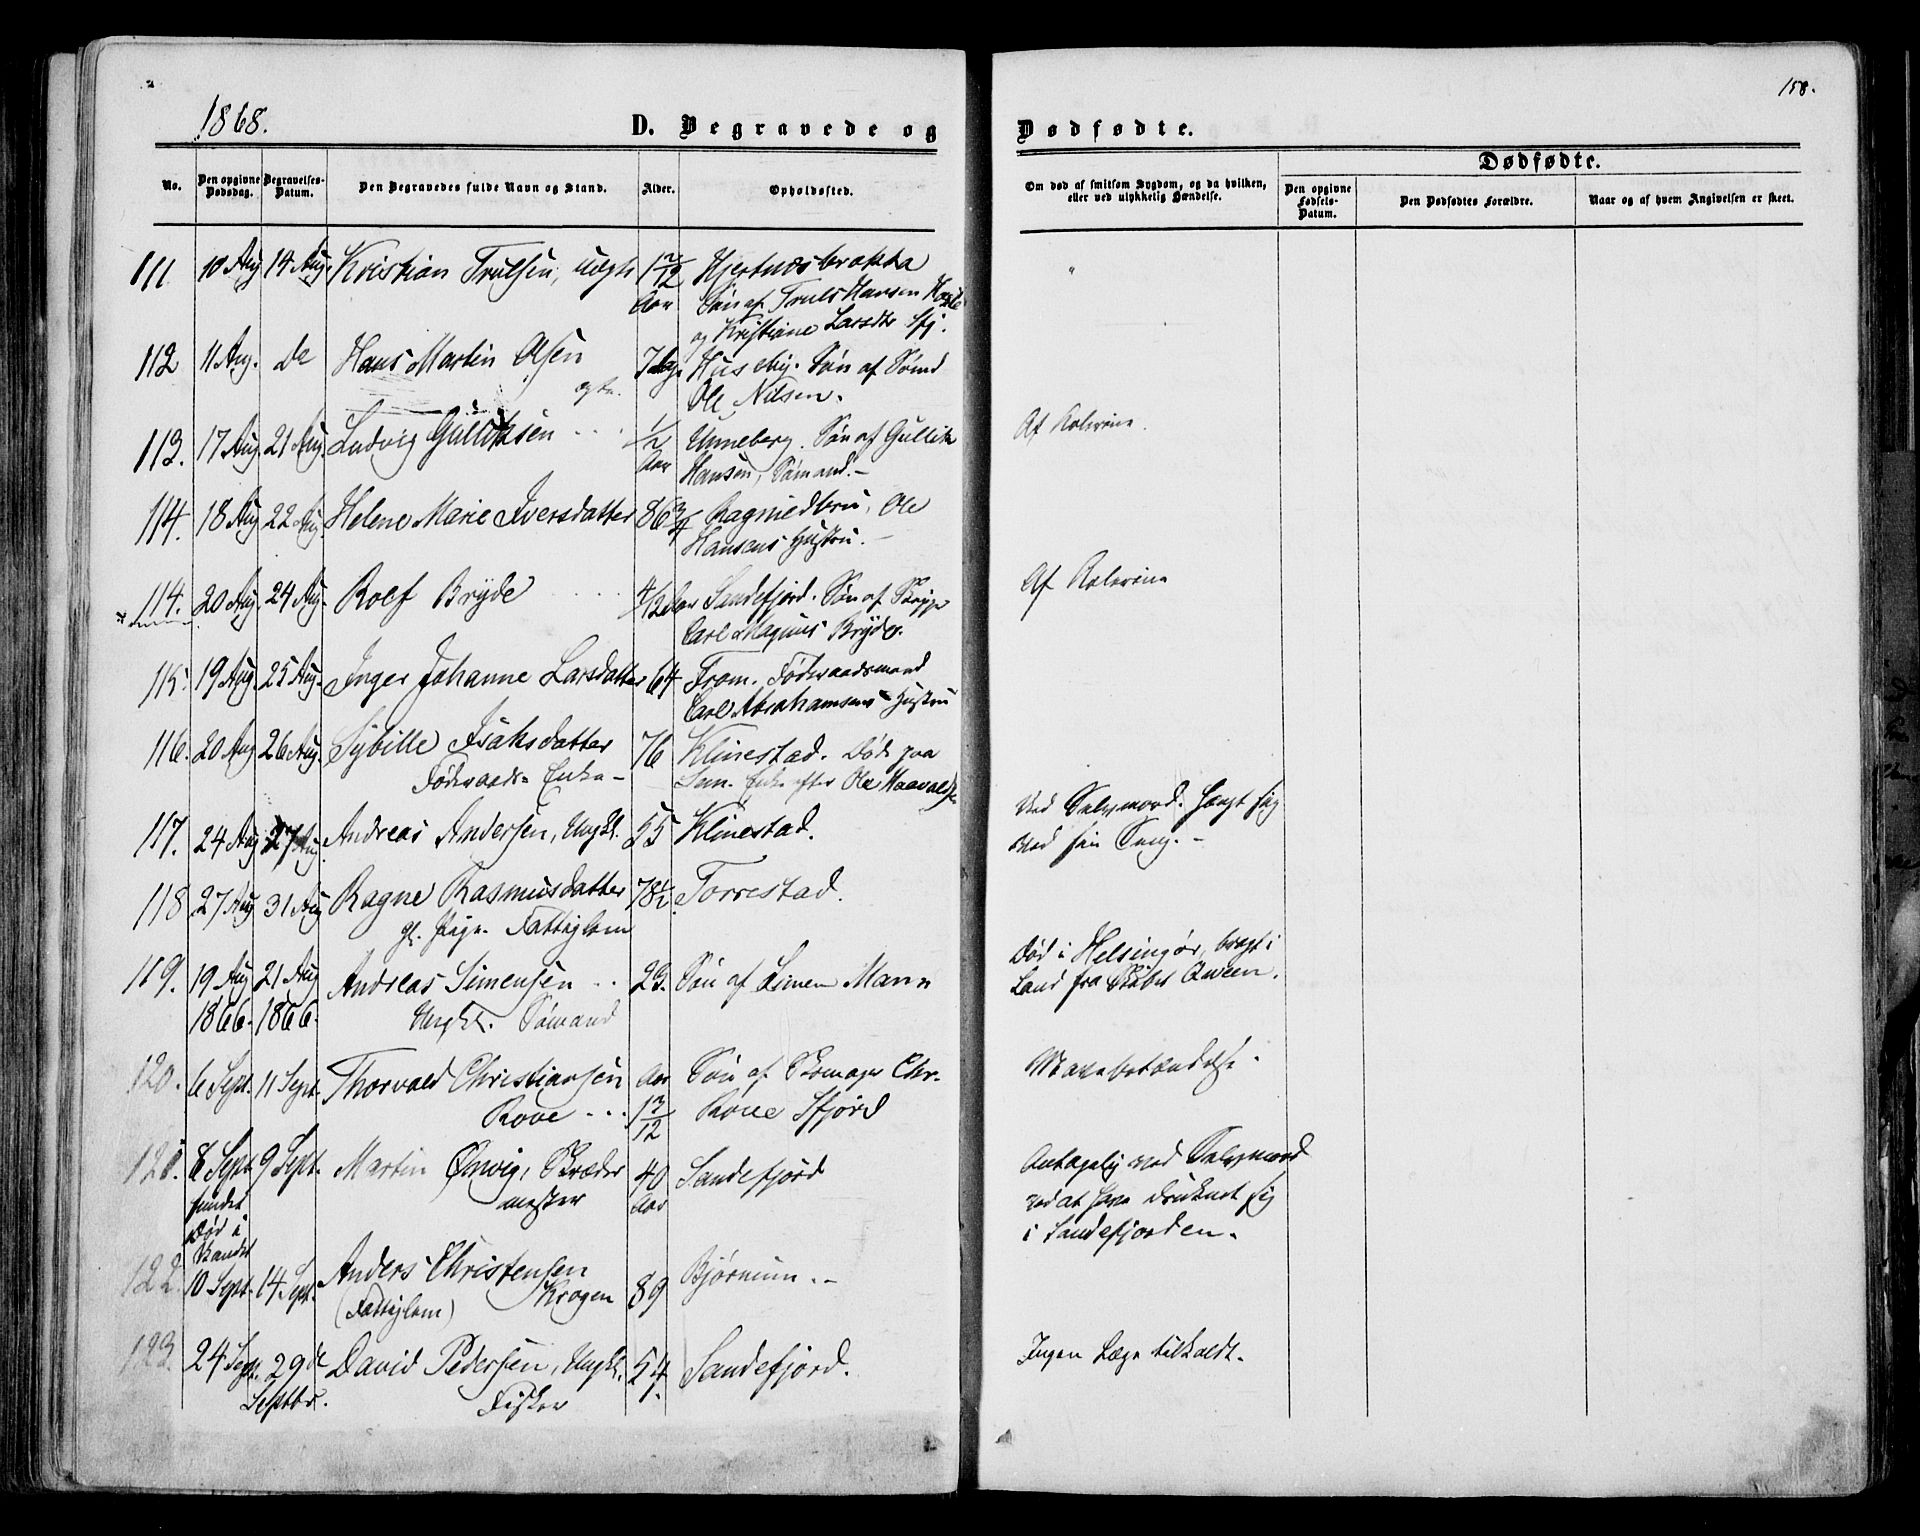 1868.
D. Begravede og
Dødfødte.
158.
Dødfødte.
No.
Den opgivne Dødsdag.
Begravelses-Datum.
Den Begravedes fulde Navn og Stand.
Alder.
Opholdssted.
Om død af smitsom Sygdom, og da hvilken, eller ved ulykkelig Hændelse.
Den opgivne Fødsels-Datum.
Den Dødfødtes Forældre.
Naar og af hvem Angivelsen er skeet.
111. 10 Aug 14 Aug. Kristian Trulsen, uægte 1 7/12 Hjertnæsbrakka
Aar Søn af Truls Hansen
og Kristiane Larsdtr Sfj.
112 11 Aug. do Hans Martin Olsen 7 Dg. Husebÿ. Søn af Sømd
ægte. Ole Nilsen.
113. 17 Aug. 21 Aug. Ludvig Gulliksen 1/2 Unneberg. Søn af Gullik
Aar Hansen, Sømand.- Af Kolerine.
114. 18 Aug 22 Aug. Helene Marie Iversdatter 86 3/4 Ole
Hansens Hustru.-
114. 20 Aug. 24 Aug. Rolf Brÿde 4/12 Aar Sandefjord. Søn af
Carl Magnus Brÿde. Af Kolerine
115. 19 Aug. 25 Aug. Inger Johanne Larsdatter 64 Fram. Føderaadsmand
Carl Abrahamsens Hustru
116. 20 Aug 26 Aug. Sÿbille Isaksdatter 76 Klinestad. Død paa
Føderaads Enke- Sem. Enke efter Ole
117. 24 Aug 27 Aug. Andreas Andersen, Ungkl. 55 Klinestad.
Ved Selvmord. Hængt sig
ved sin Seng.-
118 27 Aug 31 Aug Ragne Rasmusdatter 78 1/2. Torrestad.
gl. Pige. Fattiglem
119. 19 Aug 21 Aug Andreas Simensen 23. Søn af Simen Mann
1866. 1866. Ungkl. Sømand
Død i Helsingør, bragt i
Land fra Skibet Qween.
120. 6 Sept. 11 Sept. Thorvald Christiansen Aar Søn af Skomager Chr.
Rove 1 7/12 Rove Sfjord
Mavebetændelse.
121. 8 Sept 9 Sept. Martin Skræder 40 Sandefjord
fundet mester Aar
død i
Vandet
Antagelig ved Selvmord
ved at have druknet sig
i Sandefjorden.
122. 10 Sept. 14 Sept. Anders Christensen 89 Bjørnum.-
(Fattiglem) Krogen
123. 24 Sept. 29de David Pedersen, Ungkl. 54. Sandefjord.
Septbr. Fisker
Ingen Læge tilkaldt.